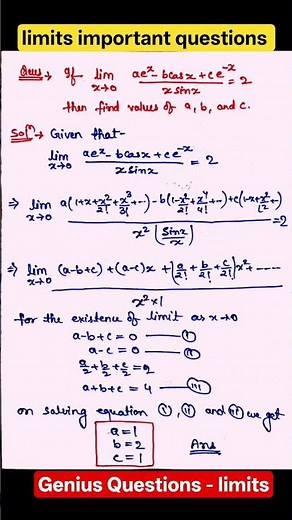 limits important questions
Ques → If lim x→0 (ae^x - bcosx + ce^-x) / (x sinx) = 2
then find values of a, b, and c.
Solⁿ → Given that-
lim x→0 (ae^x - bcosx + ce^-x) / (x sinx) = 2
⇒ lim x→0 (a(1+x+x²/2!+x³/3!+--) - b(1-x²/2!+x⁴/4!---) + c(1-x+x²/2--)) / (x² (sinx/x)) = 2
⇒ lim x→0 ((a-b+c) + (a-c)x + (a/2! + b/2! + c/2!)x² + -----) / (x²×1)
for the existence of limit as x→0
a-b+c = 0 —— (i)
a-c = 0 —— (ii)
a/2 + b/2 + c/2 = 2
a+b+c = 4 —— (iii)
on solving equation (i), (ii) and (iii) we get
a = 1
b = 2 Ans
c = 1
Genius Questions - limits